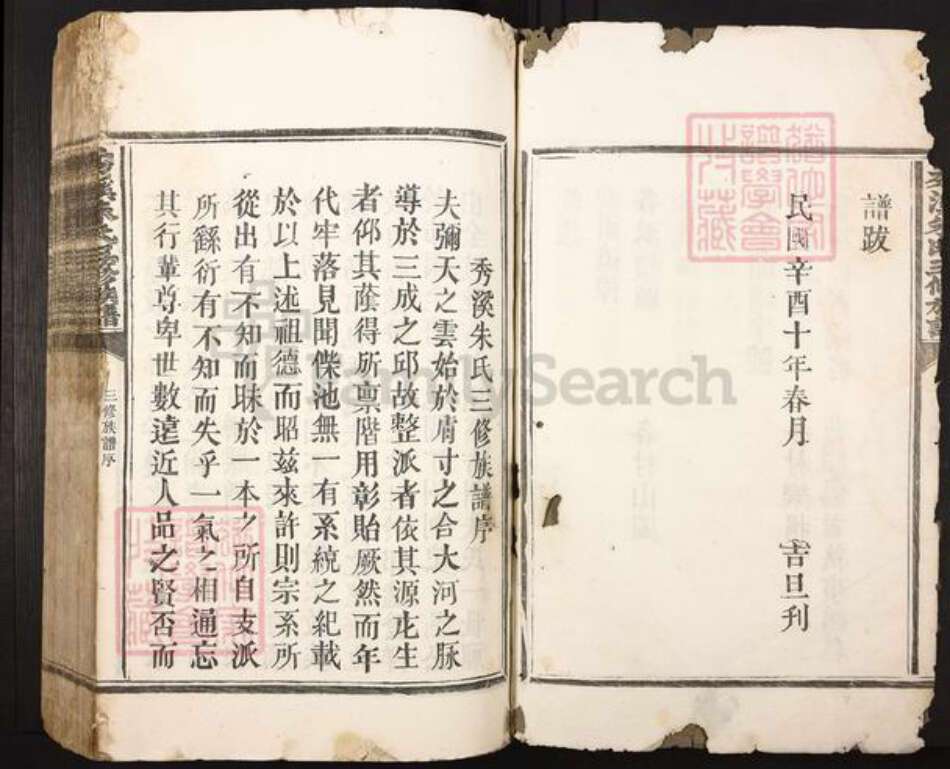 譜跋
民國辛酉十年春月 吉旦刊
秀溪朱氏三修族譜序
夫彌天之雲始於膚寸之合大河之脉
導於三成之邱故整派者依其源庇生
者仰其蔭得所禀階用彰貽厥然而年
代牢落見聞偞池無一有系統之紀載
於以上述祖德而昭兹來許則宗系所
從出有不知而眛於一本之所自支派
所繇衍有不知而失乎一氣之相通忘
其行輩尊卑世數遠近人品之賢否而
三修族譜序
FamilySearch